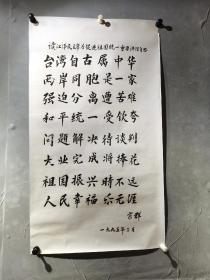 读江泽民主席为促进祖国统一重要讲话有感
台湾自古属中华
两岸同胞是一家
强迫分离遭苦难
和平统一受夸
问题解决待谈判
大业完成将捧花
祖国振兴时不远
人民幸福乐无涯
一九九五年三月